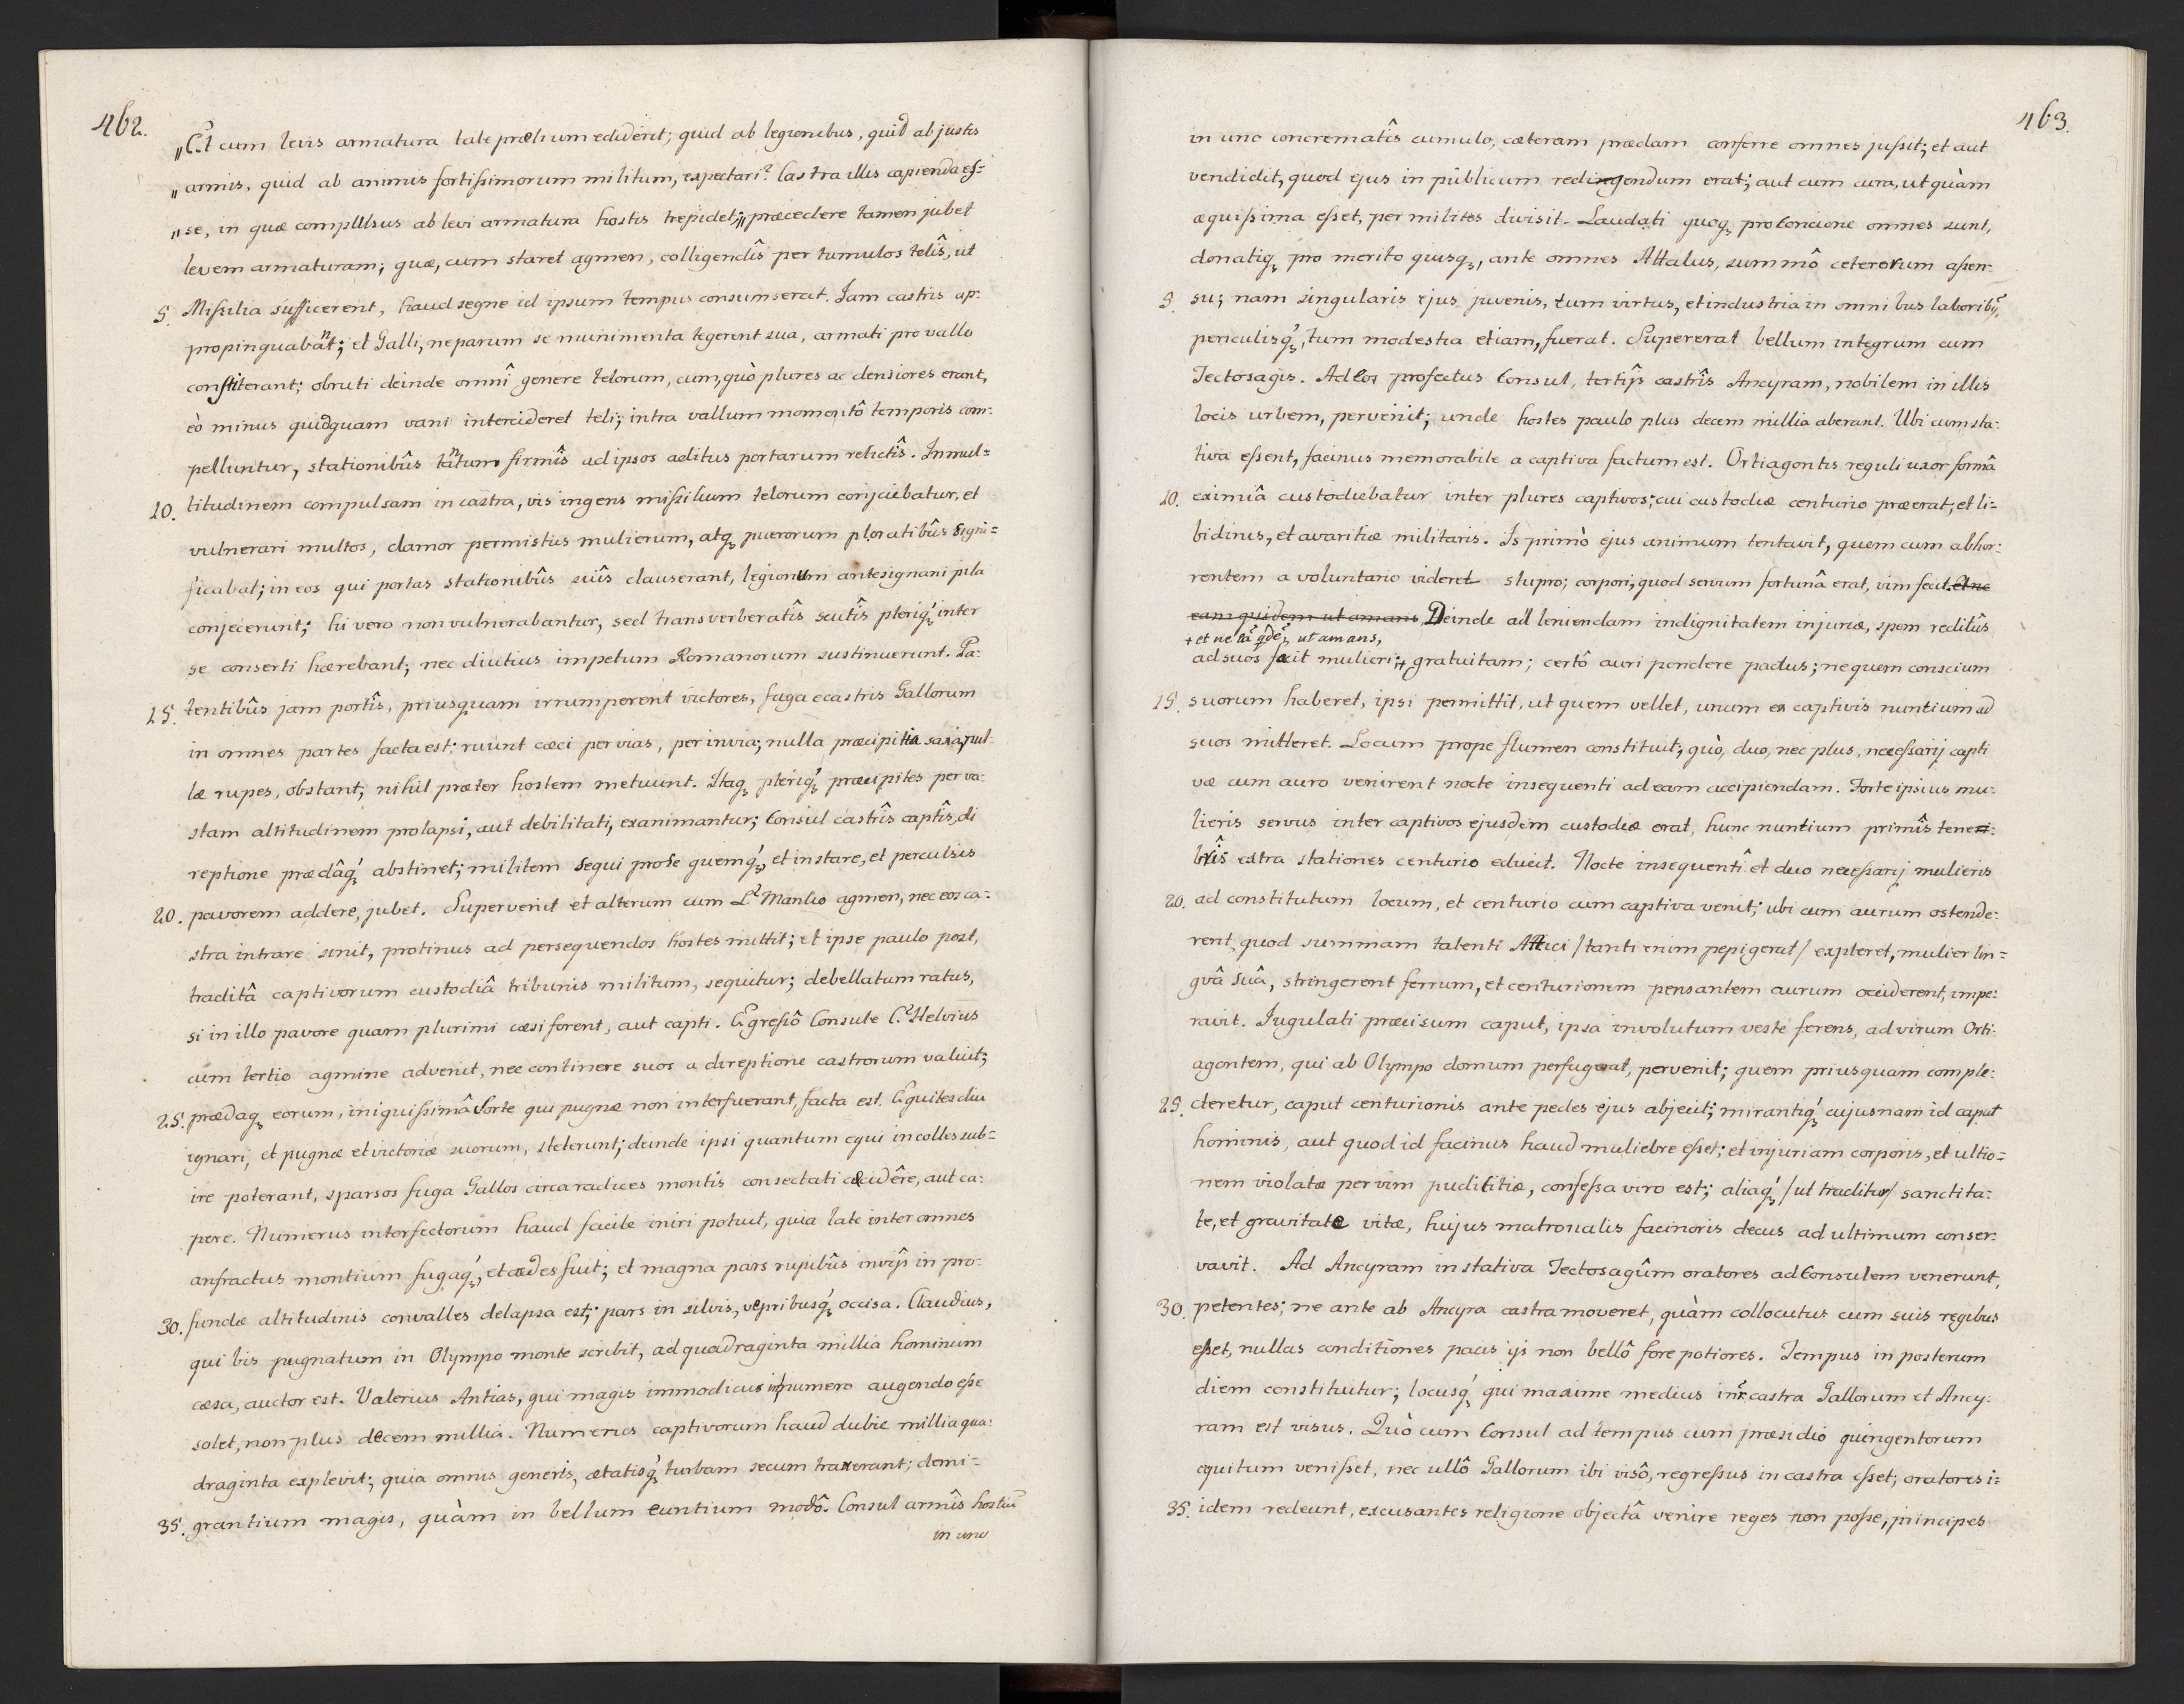 462.
„Et cum levis armatura tale prælium ediderit; quid ab legionibus, quid ab justis
„armis, quid ab animis fortissimorum militum, expectari? Castra illis capienda es=
„se, in quæ compulsus ab levi armatura hostis trepidet;„ præcedere tamen jubet
levem armaturam; quæ, cum staret agmen, colligendîs per tumulos telîs, ut
5. Missilia sufficerent, haud segne id ipsum tempus consumserat. Jam castris ap-
propinquabant; et Galli, ne parum se munimenta tegerent sua, armati pro vallo
constiterant; obruti deinde omnî genere telorum, cum, quò plures ac densiores erant,
eò minus quidquam vani intercideret teli; intra vallum momentô temporis com-
pelluntur, stationibûs tantum firmîs ad ipsos aditus portarum relictîs. In mul=
10. titudinem compulsam in castra, vis ingens missilium telorum conjiciebatur, et
vulnerari multos, clamor permistus mulierum, atq; puerorum ploratibûs signi=
ficabat; in eos qui portas stationibûs suîs clauserant, legionum antesignani pila
conjecerunt; hi vero non vulnerabantur, sed transverberatîs scutîs pleriq; inter
se conserti hærebant; nec diutius impetum Romanorum sustinuerunt. Pa-
15. tentibûs jam portîs, priusquam irrumperent victores, fuga e castris Gallorum
in omnes partes facta est; ruunt cæci per vias, per invia; nulla præcipitia saxa, nul-
læ rupes, obstant; nihil præter hostem metuunt. Itaq; pleriq; præcipites per va-
stam altitudinem prolapsi, aut debilitati, exanimantur; Consul castrîs captîs, di
reptione prædâq; abstinet; militem sequi pro se quemq;, et instare, et perculsis
20. pavorem addere, jubet. Supervenit et alterum cum L. Manlio agmen, nec eos ca-
stra intrare sinit, protinus ad persequendos hostes mittit; et ipse paulo post,
traditâ captivorum custodiâ tribunis militum, sequitur; debellatum ratus,
si in illo pavore quam plurimi cæsi forent, aut capti. Egressô Consule C. Helvius
cum tertio agmine advenit, nec continere suos a direptione castrorum valuit;
25. prædaq; eorum, iniquissimâ sorte qui pugnæ non interfuerant, facta est. Equites diu
ignari, et pugnæ et victoriæ suorum, steterunt; deinde ipsi quantum equi in colles sub=
ire poterant, sparsos fuga Gallos circa radices montis consectati cecidêre, aut ca-
pere. Numerus interfectorum haud facile iniri potuit, quia late inter omnes
anfractus montium fugaq;, et cædes fuit; et magna pars rupibûs invijs in pro-
30. fundæ altitudinis convalles delapsa est; pars in silvis, vepribusq; occisa. Claudius,
qui bis pugnatum in Olympo monte scribit, ad quadraginta millia hominum
cæsa, auctor est. Valerius Antias, qui magis immodicus in numero augendo esse
solet, non plus decem millia. Numerus captivorum haud dubie millia qua-
draginta explevit; quia omnis generis, ætatisq; turbam secum traxerant; demi=
35. grantium magis, quàm in bellum euntium modô. Consul armîs hostiū
in uno
463.
in uno concrematîs cumulo, cæteram prædam conferre omnes jussit; et aut
vendidit, quod ejus in publicum redigendum erat; aut cum cura, ut quàm
æquissima esset, per milites divisit. Laudati quoq; pro Concione omnes sunt,
donatiq; pro merito quisq;, ante omnes Attalus, summô ceterorum assen-
5. su; nam singularis ejus juvenis, tum virtus, et industria in omnibus laboribq,
periculisq;, tum modestia etiam, fuerat. Supererat bellum integrum cum
Tectosagis. Ad eos profectus Consul, tertijs castrîs Ancyram, nobilem in illis
locis urbem, pervenit; unde hostes paulo plus decem millia aberant. Ubi cum sta-
tiva essent, facinus memorabile a captiva factum est. Ortiagontis reguli uxor formâ
10. eximiâ custodiebatur inter plures captivos; cui custodiæ centurio præerat; et li=
bidinis, et avaritiæ militaris. Is primò ejus animum tentavit, quem cum abhor-
rentem a voluntario videret stupro; corpori, quod servum fortunâ erat, vim fecit. et ne
eam quidem ut amans, Deinde ad leniendam indignitatem injuriæ, spem reditûs
+ et ne eā qdē ut amans,
ad suos facit mulieri; + gratuitam; certô auri pondere pactus; ne quem conscium
15. suorum haberet, ipsi permittit, ut quem vellet, unum ex captivis nuntium ad
suos mitteret. Locum prope flumen constituit; quò, duo, nec plus, necessarij capti
væ cum auro venirent nocte insequenti ad eam accipiendam. Forte ipsius mu-
lieris servus inter captivos ejusdem custodiæ erat, hunc nuntium primîs tene-
brîs extra stationes centurio educit. Nocte insequentî et duo necessarij mulieris
20. ad constitutum locum, et centurio cum captiva venit; ubi cum aurum ostende-
rent, quod summam talenti Attici /tanti enim pepigerat/ expleret, mulier lin=
gvâ suâ, stringerent ferrum, et centurionem pensantem aurum occiderent, impe-
ravit. Jugulati præcisum caput, ipsa involutum veste ferens, ad virum Orti-
agontem, qui ab Olympo domum perfugerat, pervenit; quem priusquam comple-
25. cteretur, caput centurionis ante pedes ejus abjecit; mirantiq; cujusnam id caput
hominis, aut quod id facinus haud muliebre esset; et injuriam corporis, et ultio=
nem violatæ per vim pudicitiæ, confessa viro est; aliaq; /ut traditur/ sanctita-
te, et gravitate vitæ, hujus matronalis facinoris decus ad ultimum conser-
vavit. Ad Ancyram in stativa Tectosagûm oratores ad Consulem venerunt,
30. petentes; ne ante ab Ancyra castra moveret, quàm collocutus cum suis regibus
esset, nullas conditiones pacis ijs non bellô fore potiores. Tempus in posterum
diem constituitur; locusq; qui maxime medius intr castra Gallorum et Ancy-
ram est visus. Quò cum Consul ad tempus cum præsidio quingentorum
equitum venisset, nec ullô Gallorum ibi visô, regressus in castra esset; oratores i=
35. idem redeunt, excusantes religione objectâ venire reges non posse, principes